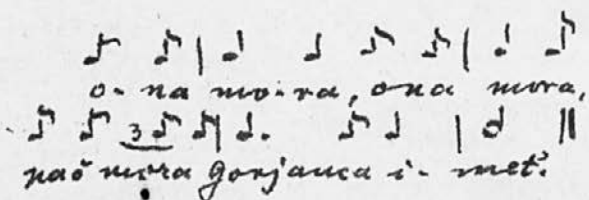 o-na mo-ra, ona mora,
3
naš mora Gorjanca i-met'.